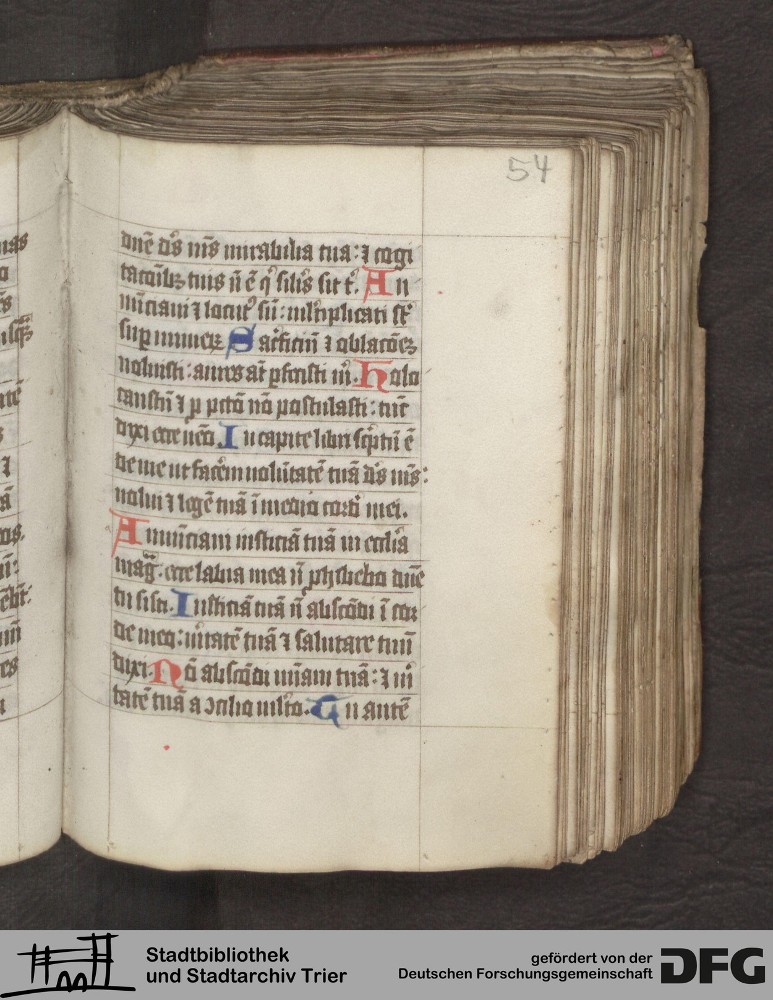 54
dn̄e ds̄ ms̄ mirabilia tua: ⁊ cogi
tacōib; tuis n̄ ē qͥ silis sit t͛. An
nūciaui ⁊ locutꝰ sū: ml̄tiplicati st̄
sup̄ numeꝝ Sac̓ficiū ⁊ oblacōeꝫ
noluisti: aures aūt ꝑfecisti m̄. Holo
caustū ⁊ ꝓ pctō nō postulasti: tūc
dixi ecce ueō. In capite libri sc̓ptū ē
de me ut facerē uolūtatē tuā ds̄ ms̄:
uolui ⁊ legē tuā ī medio cordis mei.
Annūciaui iusticiā tuā in ecclīa
mag̃. ecce labia mea nō ꝓhibebo dn̄e
tu scisti. Iusticiā tuā nō abscōdi ī cor
de meo: uitatē tuā ⁊ salutare tuū
dixi. Nō abscōdi miam̄ tuā: ⁊ ui
tatē tuā a ↄcilio mlto. Tu autē
Stadtbibliothek
und Stadtarchiv Trier
gefördert von der
Deutschen Forschungsgemeinschaft
DFG